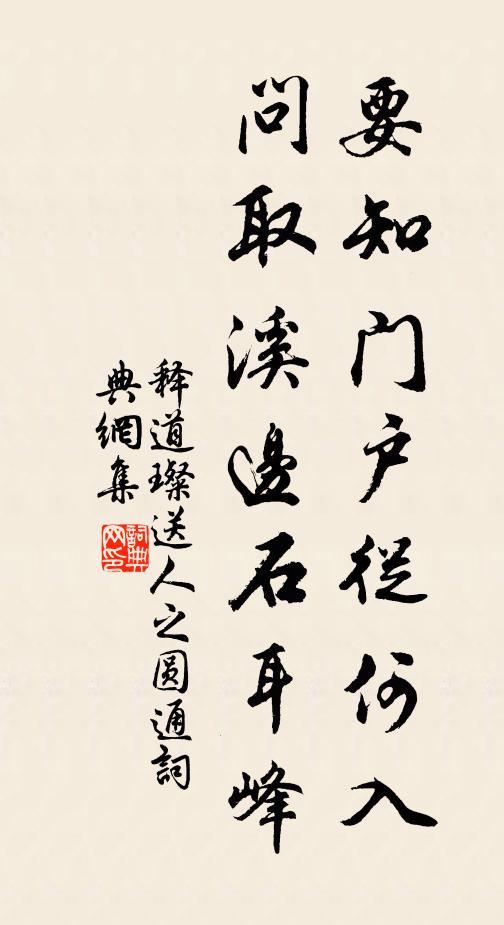 要知门户從何入
问取溪邊石耳峰
释道璨送人之圆通詞
典網集
詞典
网印